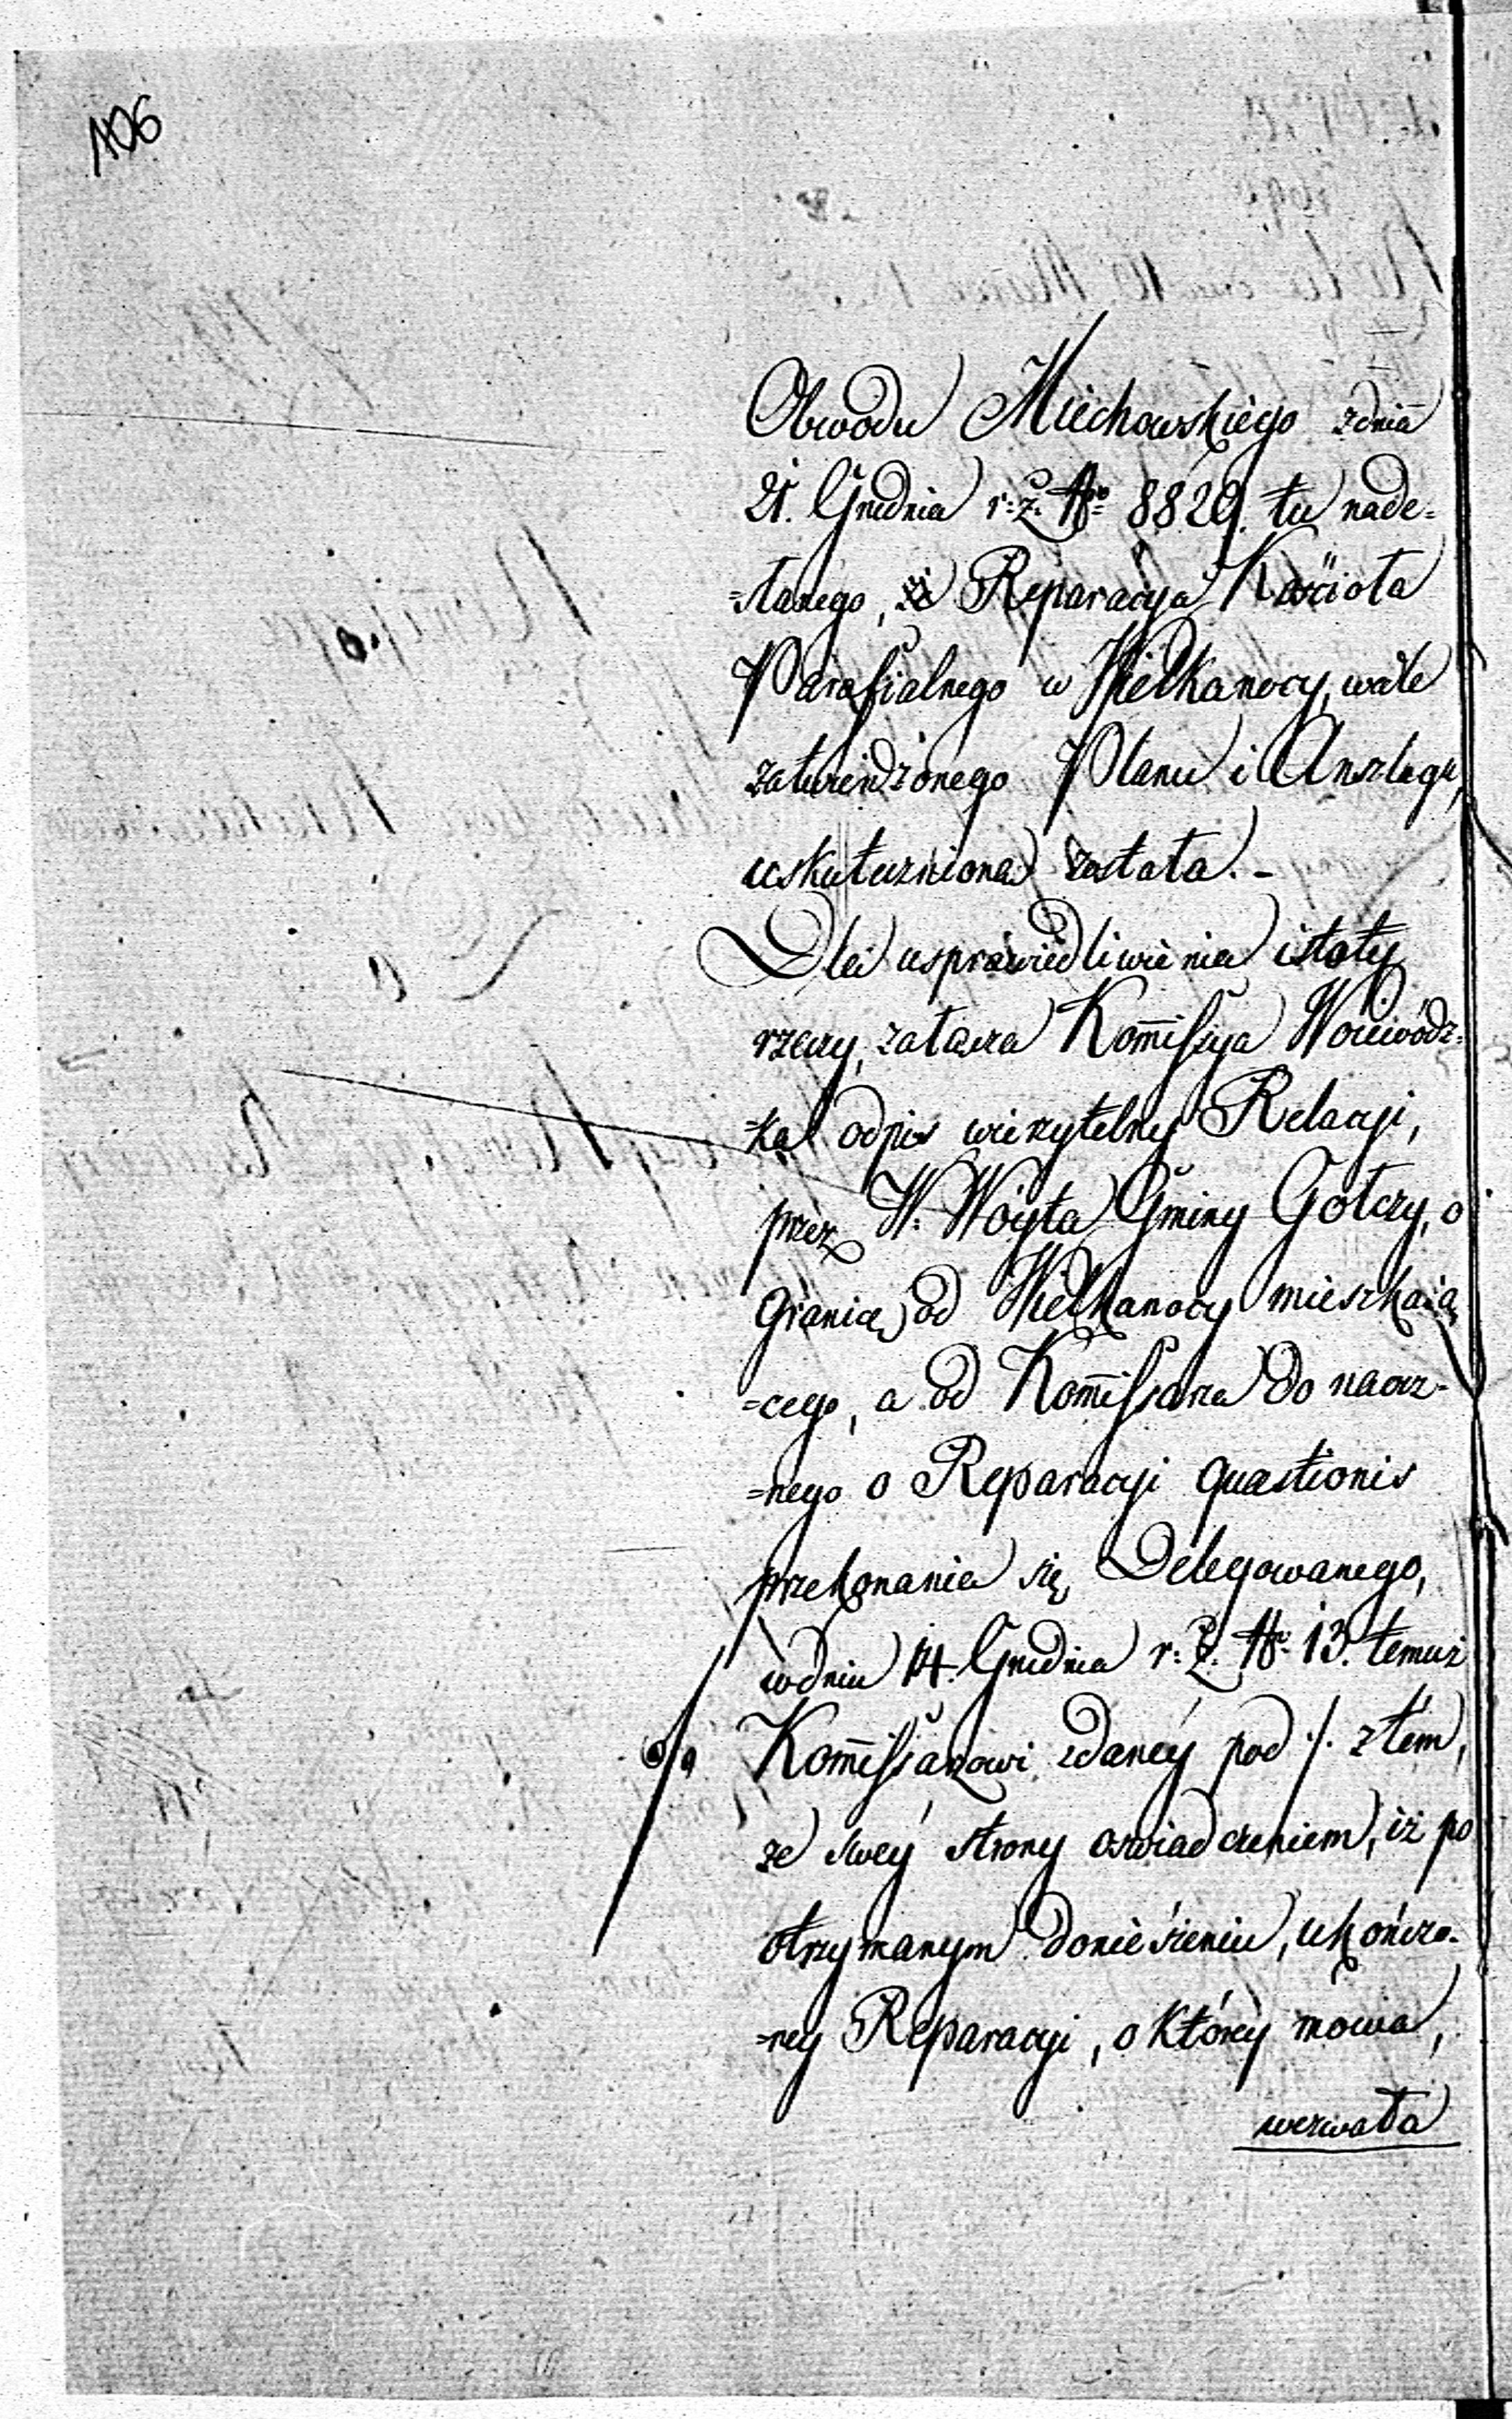 106
Obwodu Miechowskiego z dnia
21. Grudnia r: z: No 8820. tu nade=
=słanego, iż Reparacya Kościoła
Parafialnego w Wielkanocy, wedle
zatwierdzonego Planu i Anszlagu,
uskuteczniona została. -
Dla usprawiedliwienia istoty
rzeczy, załącza Kommissya Wojewódz=
=ka odpis wierzytelny Relacyi,
przez W: Woyta Gminy Gołczy, o
granicę od Wielkanocy mieszkaią
=cego, a od Kommissarza do naocz=
=nego o Reparacyi quaestionis
przekonania się, Delegowanego,
w dniu 14. Grudnia r: z: No 13. temuż
Kommissarzowi zdaney pod ./. z tém,
ze swey strony oswiadczeniem, iż po
otrzymanym doniesieniu, ukończo=
=ney Reparacyi, o którey mowa,
wezwała